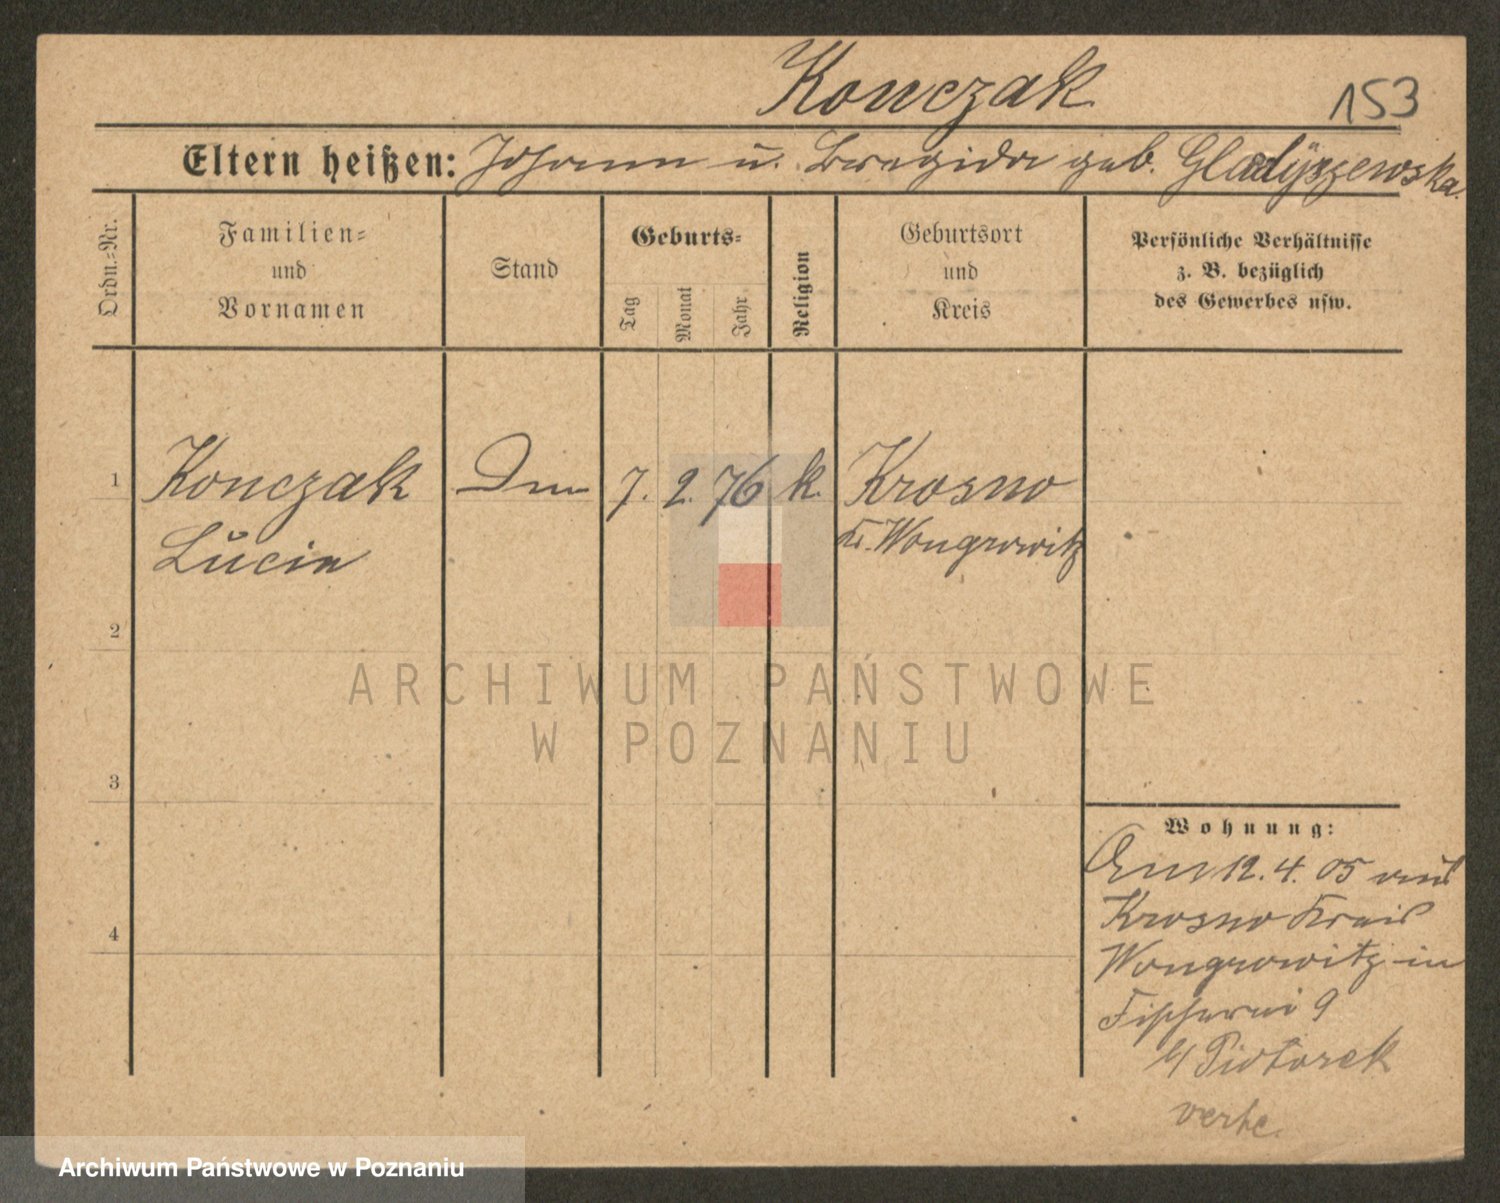 Konczak 153
Eltern heißen: Johann u. geb. Gladyszewska
Ordn.-Nr.
Familien-
und
Vornamen
Stand
Geburts-
Tag
Monat
Jahr
Religion
Geburtsort
und
Kreis
Persönliche Verhältnisse
z. B. bezüglich
des Gewerbes usw.
1 Konczak 7. 2. 76 k. Krosno
Lucia Kr. Wongrowitz
2
ARCHIWUM PAŃSTWOWE
W POZNANIU
3
Wohnung:
Am 12. 4. 05 aus
Krosno Kreis
4
Wongrowitz in
Fischerei 9
b/ Piotorek
Archiwum Państwowe w Poznaniu